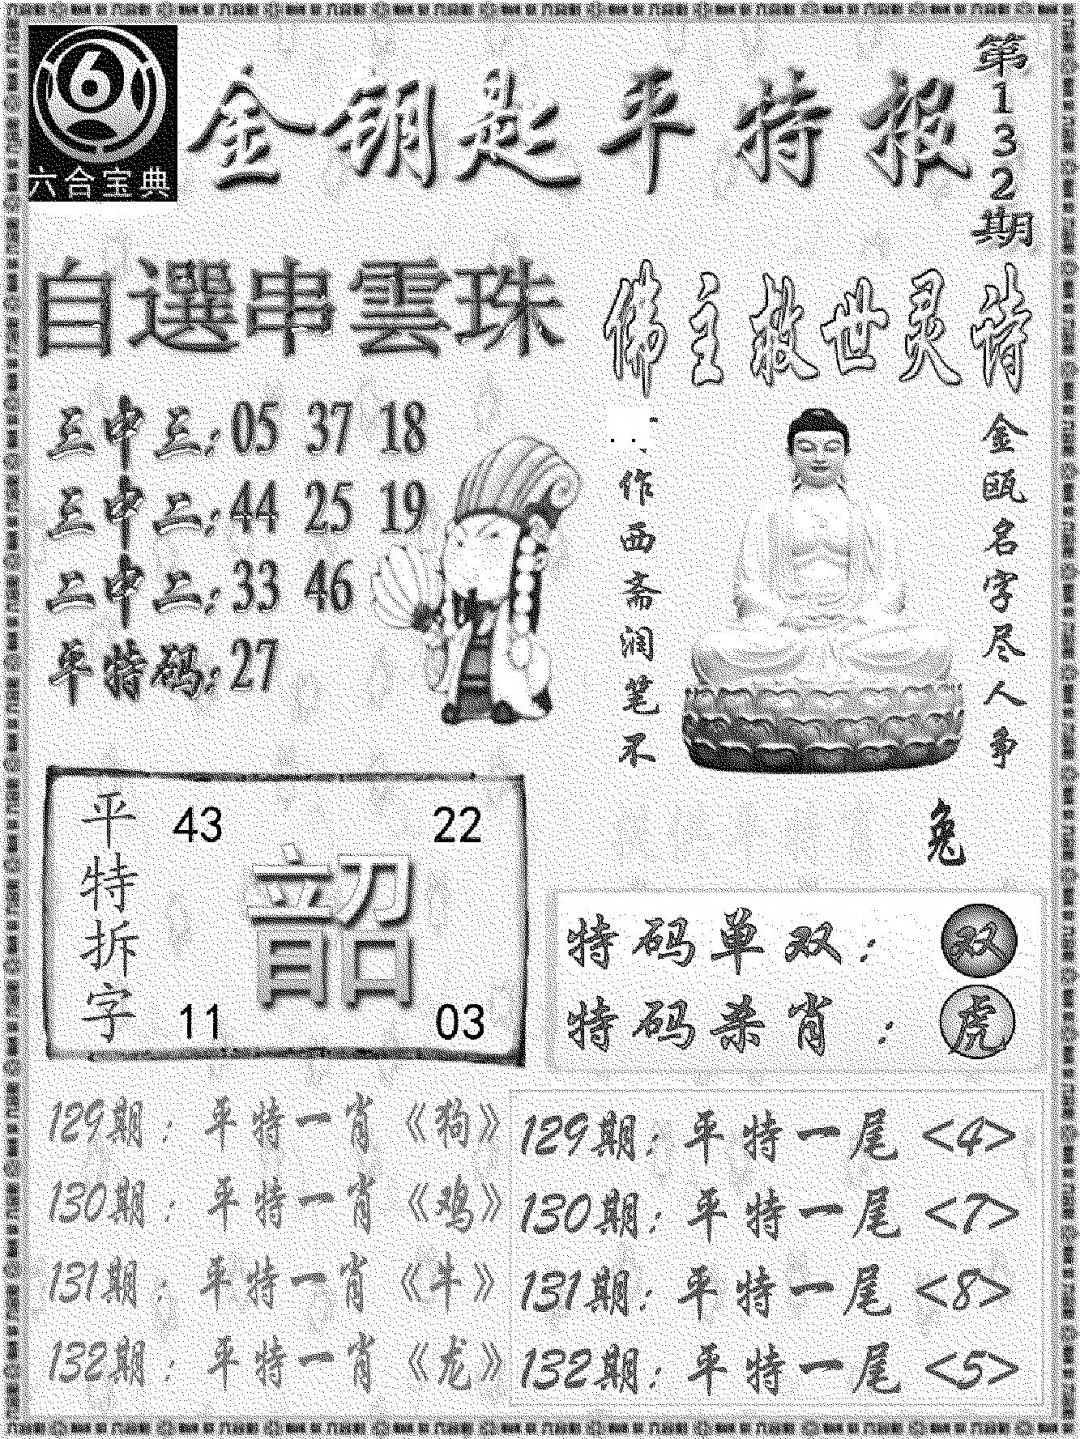 六合宝典
金钥匙平特报
第132期
自選串雲珠
佛主救世灵诗
三中三:05 37 18
三中二:44 25 19
二中二:33 46
平特码:27
金瓯名字尽人争
作西斋润笔不
兔
平特拆字
43 22
韶
11 03
特码单双:双
特码杀肖:虎
129期:平特一肖《狗》
130期:平特一肖《鸡》
131期:平特一肖《牛》
132期:平特一肖《龙》
129期:平特一尾<4>
130期:平特一尾<7>
131期:平特一尾<8>
132期:平特一尾<5>